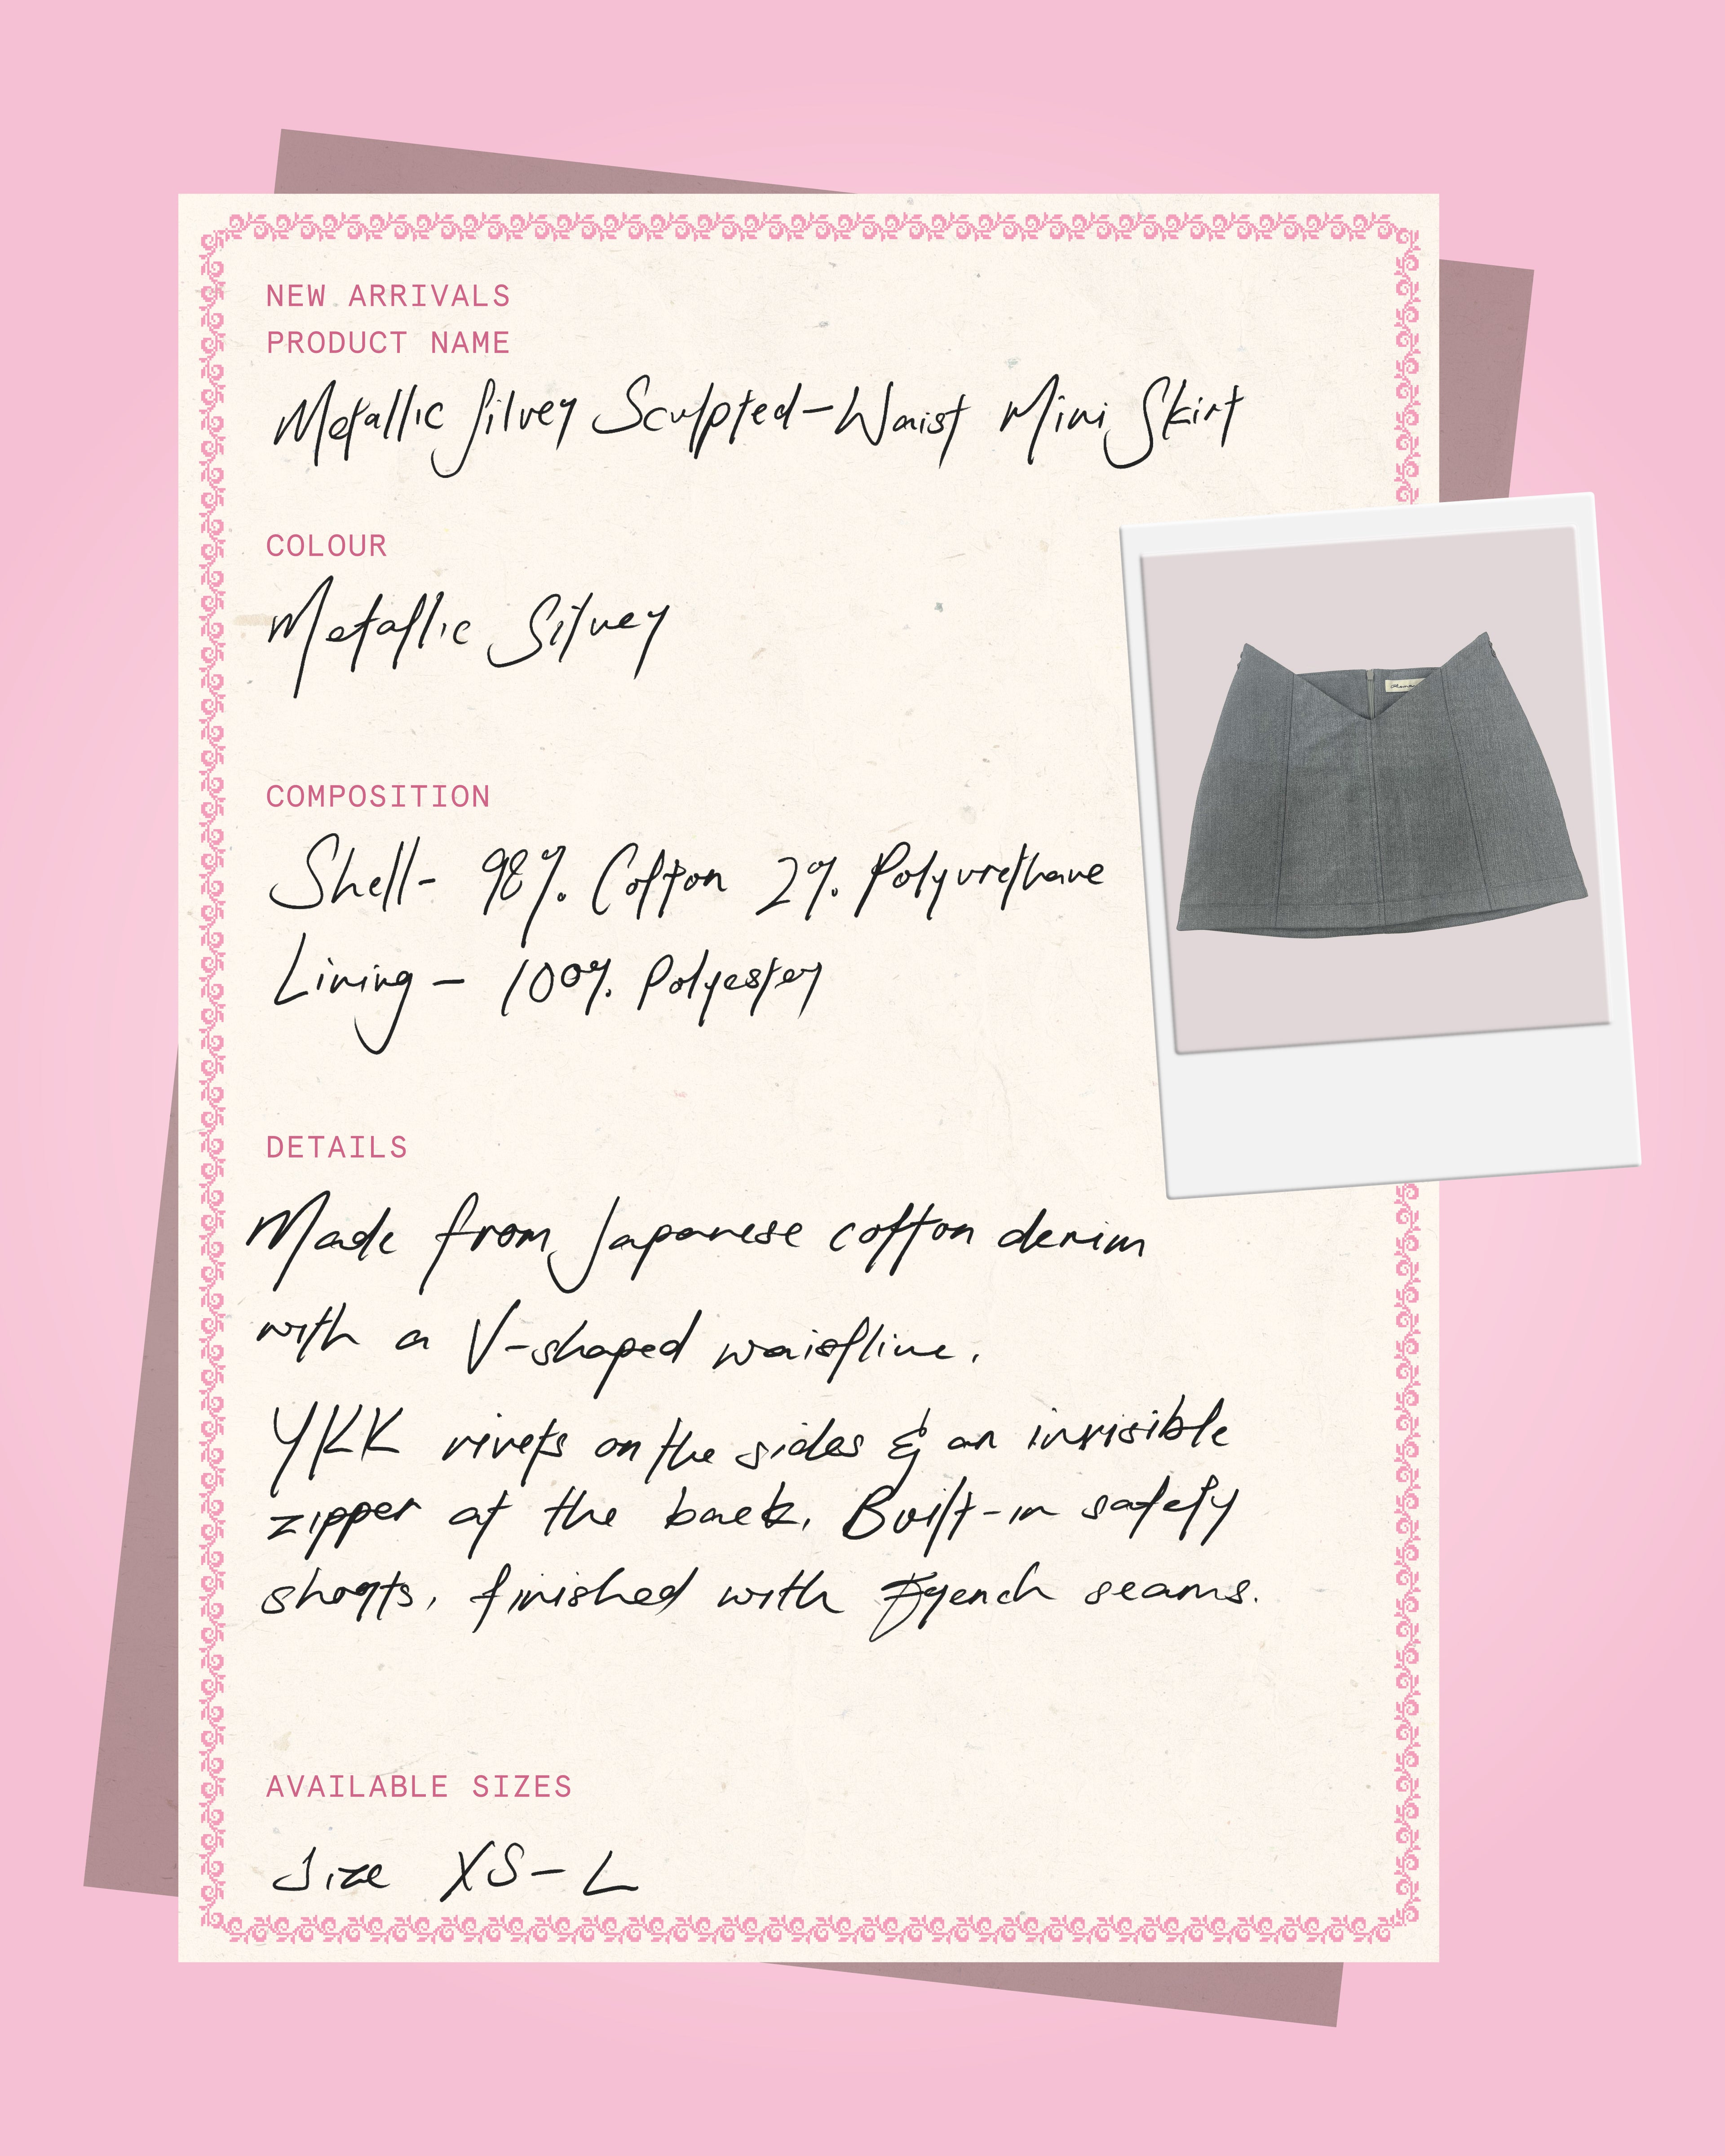 NEW ARRIVALS
PRODUCT NAME
Metallic Silver Sculpted-Waist Mini Skirt
COLOUR
Metallic Silver
COMPOSITION
Shell- 98% Cotton 2% Polyurethane
Lining - 100% Polyester
DETAILS
Made from Japanese cotton denim
with a V-shaped waistline.
YKK rivets on the sides & an invisible
zipper at the back. Built-in safety
shorts, finished with French seams.
AVAILABLE SIZES
Size XS-L